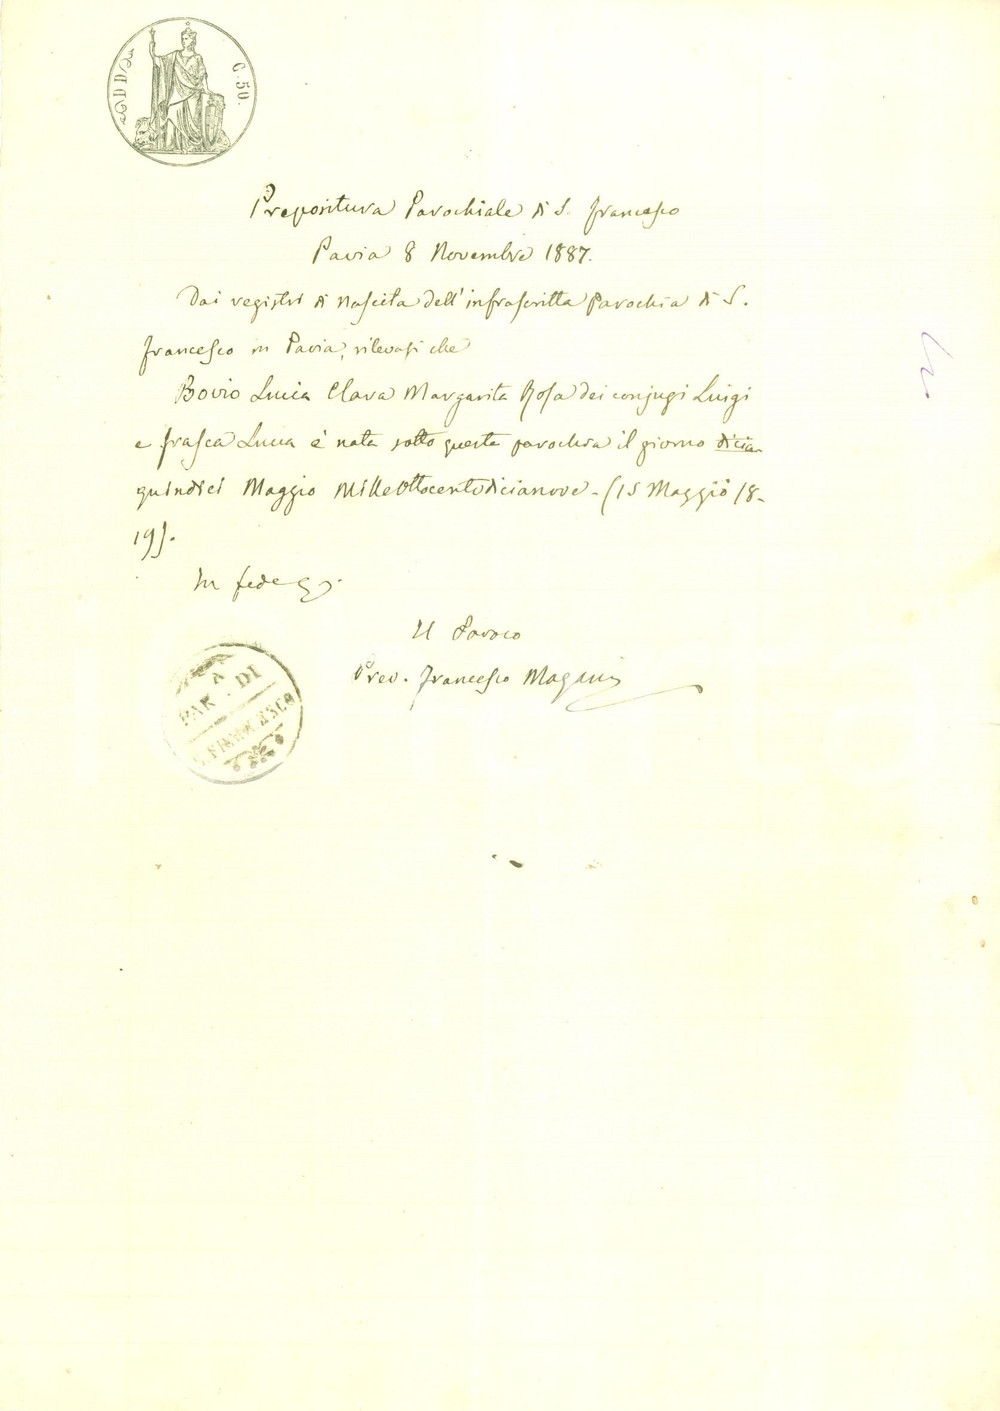 DD
C. 50.
Prepositura Parochiale di S. Francesco
Pavia 8 Novembre 1887.
Dai registri di nascita dell'infrascritta Parochia di S.
Francesco in Pavia, rilevasi che
Bovio Luicia Clara Margarita Rosa dei conjugi Luigi
e Frasca Lucia è nata sotto questa parochia il giorno dicia-
quindici Maggio Mille Ottocento dicianove - (15 Maggio 18-
19).
In fede
Il Paroco
Prev. Francesco Magani
PAR. DI
S. FRANCESCO